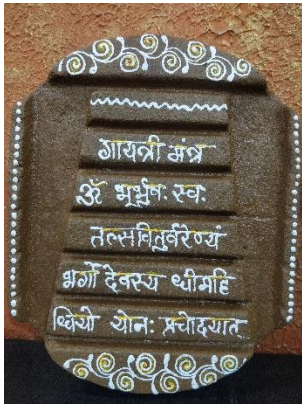 गायत्री मंत्र
ॐ भूर्भुवः स्वः
तत्सवितुर्वरेण्यं
भर्गो देवस्य धीमहि
धियो योनः प्रचोदयात